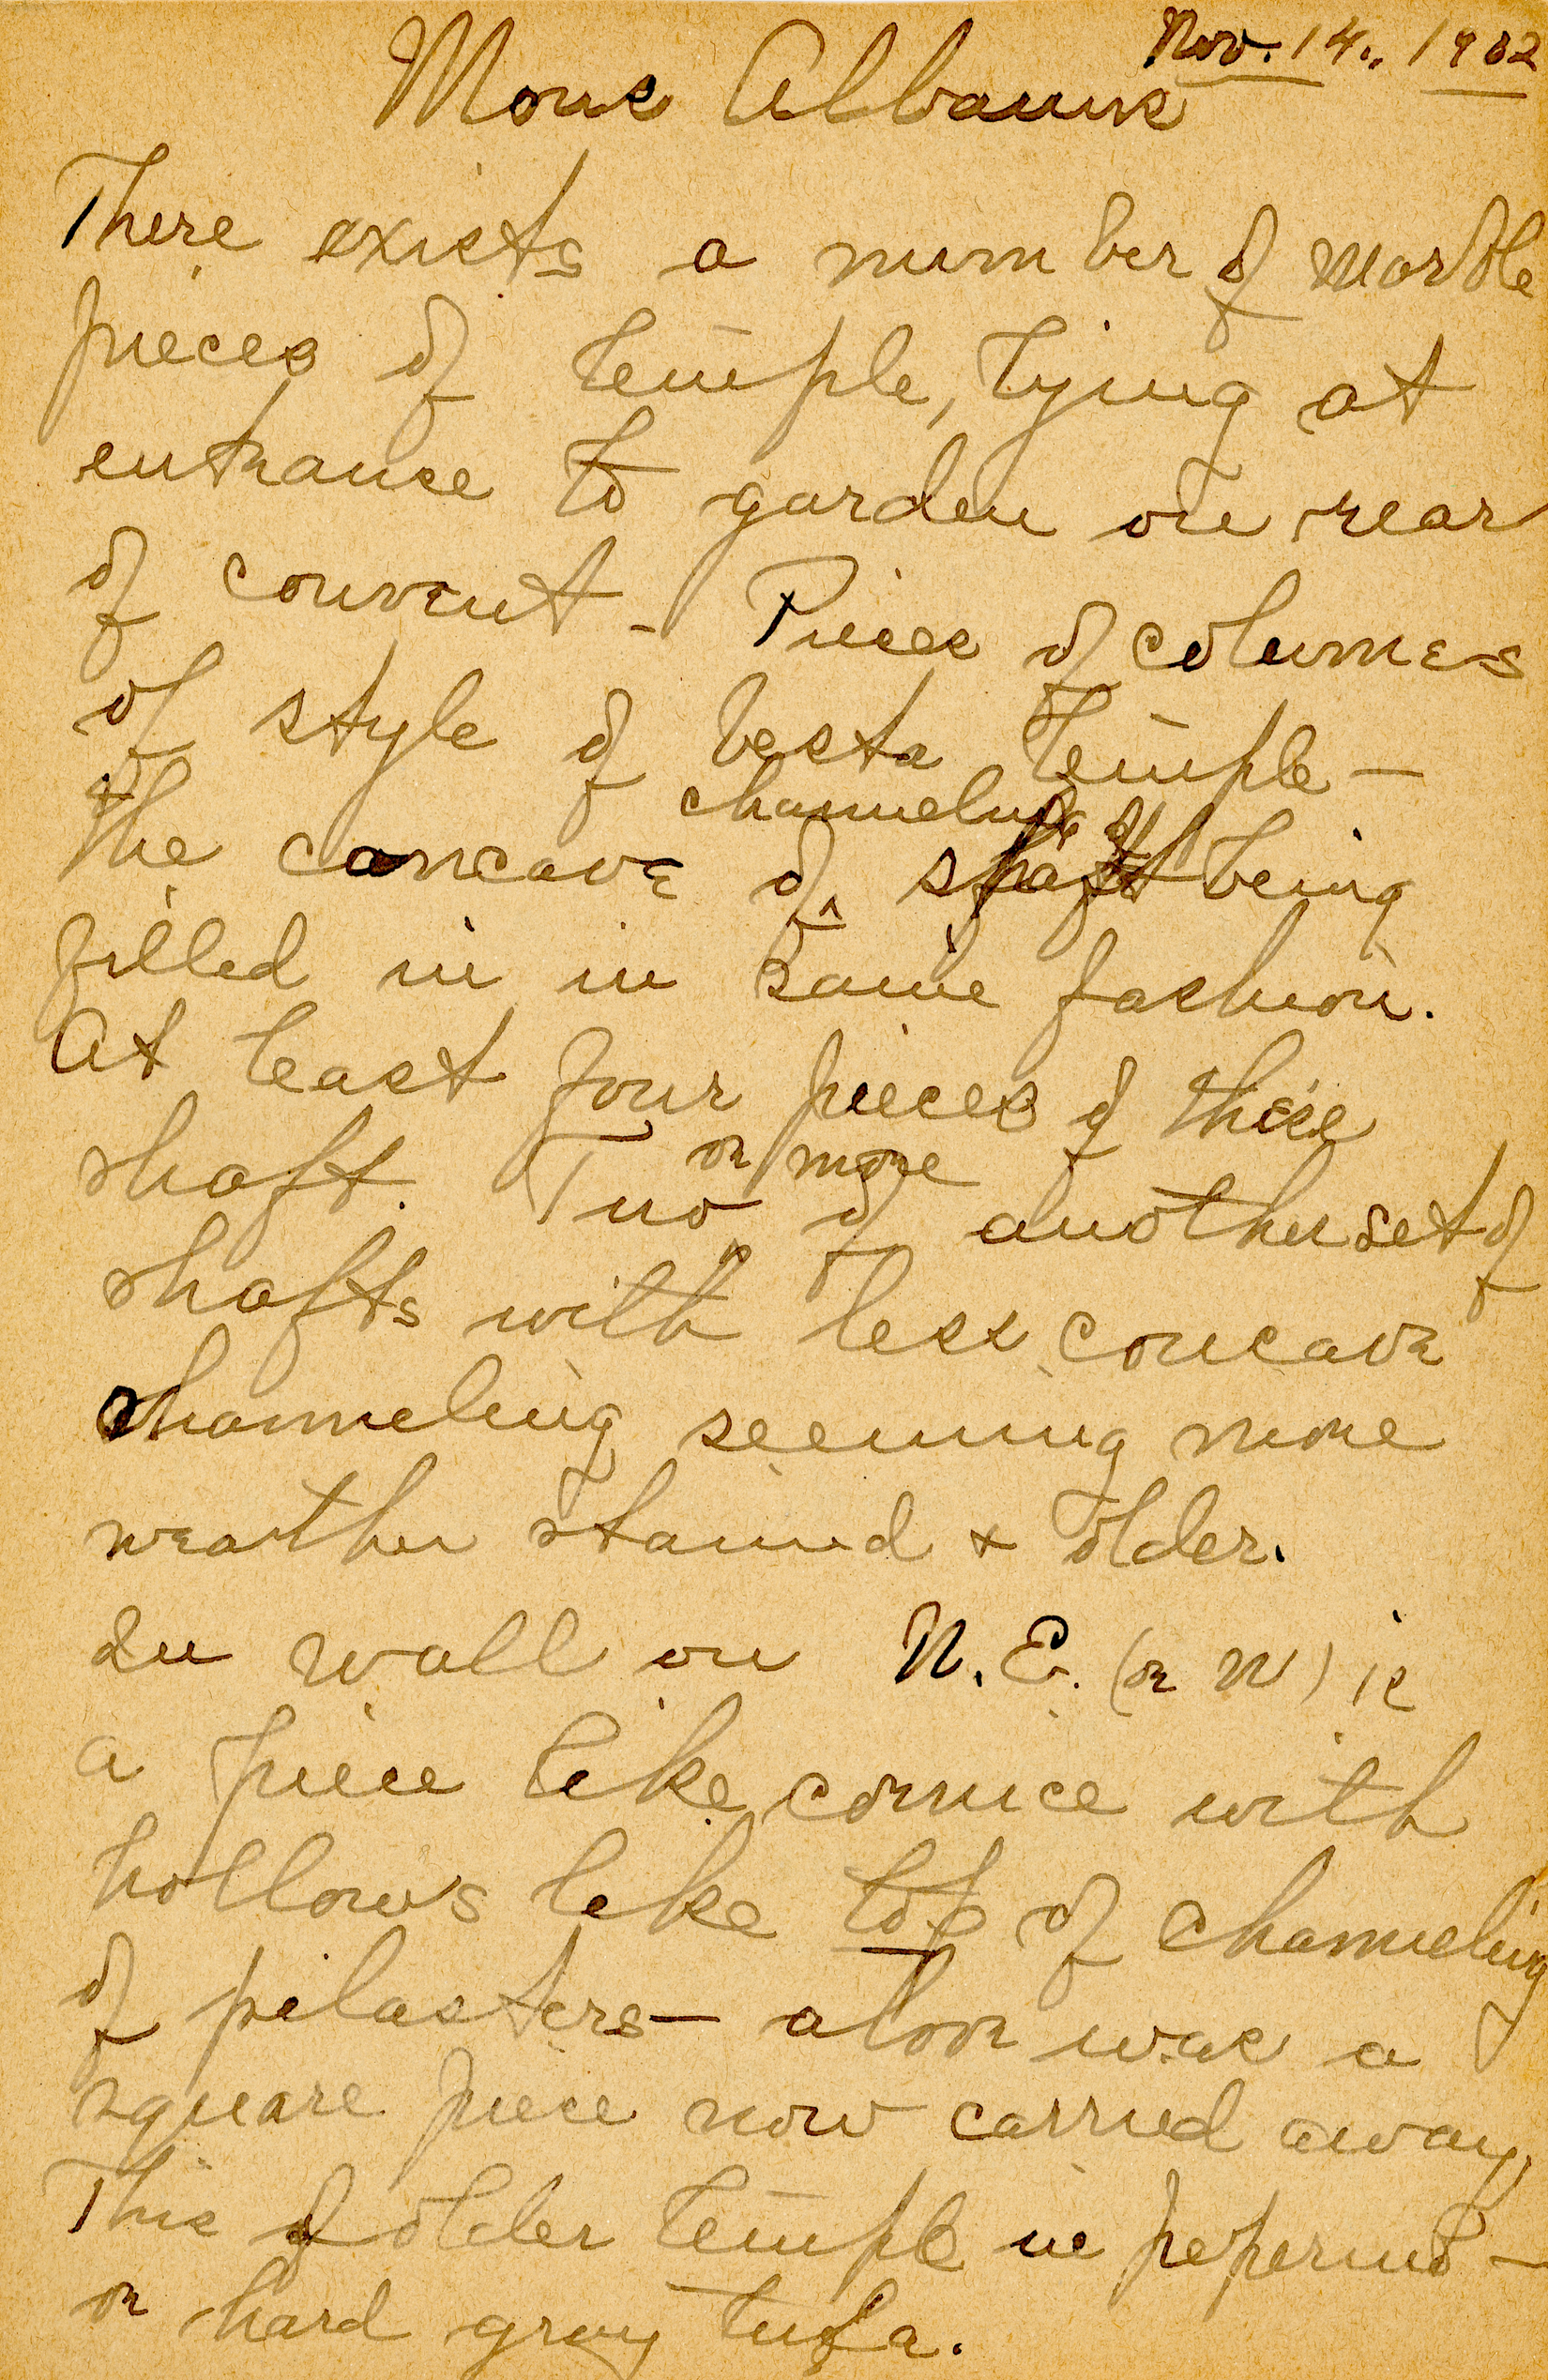 Nov. 14., 1902
Mons Albanus
There exists a number of marble
pieces of temple, lying at
entrance to garden on rear
of convent - Pieces of columns
of style of Vesta Temple -
The concave of ^ channeling of shaft being
filled in in same fashion.
At least four pieces of these
shaft. Two or more of another set of
shafts with less concave
channeling seeming more
weather stained + older.
In wall on N.E. (or N) is
a piece like cornice with
hollows like top of channeling
of pilasters - also was a
square piece now carried away.
This of older temple in peperino -
or hard gray tufa.